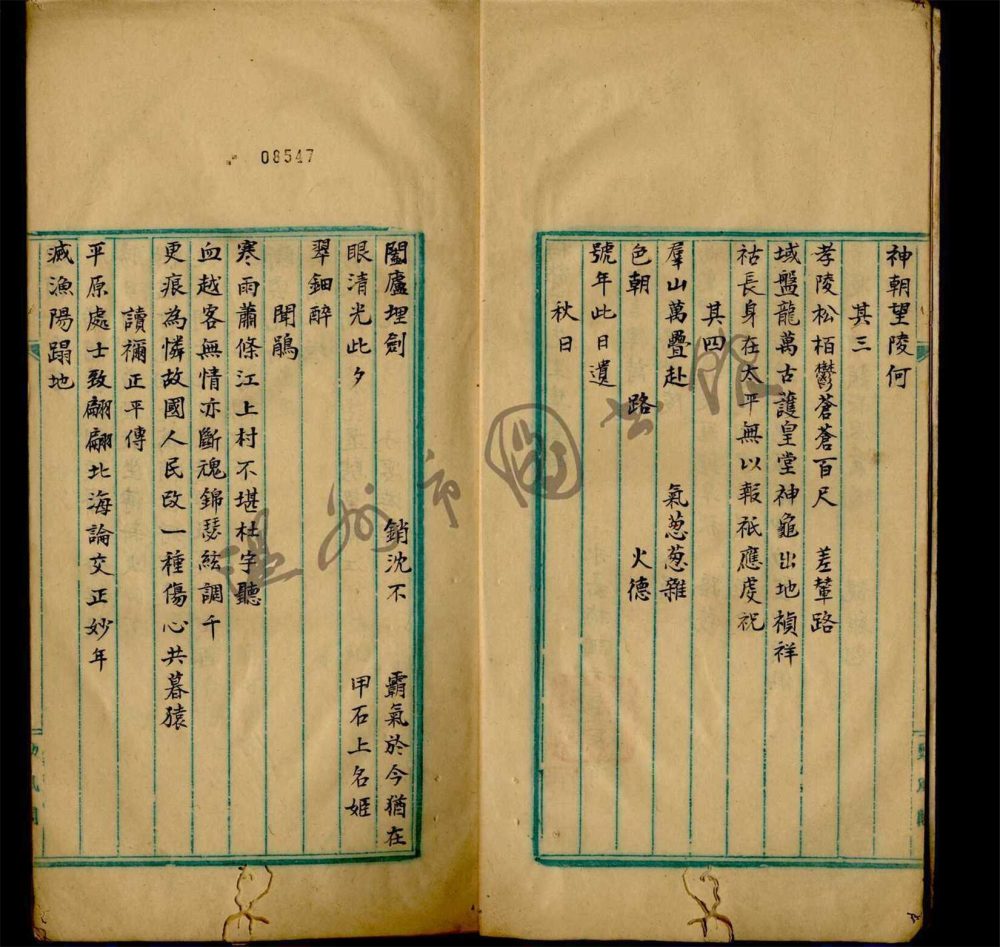 神朝望陵何
其三
孝陵松栢鬱蒼蒼百尺 差輦路
域盤龍萬古護皇堂神龜出地禎祥
祜長身在太平無以報祇應虔祝
其四
羣山萬疊赴 氣葱葱雜
色朝 路 火德
號年此日遺
秋日
08547
闔廬埋劍 銷沈不 霸氣於今猶在
眼清光此夕 甲石上名姬
翠鈿醉
聞鵑
寒雨蕭條江上村不堪杜宇聽
血越客無情亦斷魂錦瑟絃調千
更痕為憐故國人民改一種傷心共暮猿
讀禰正平傳
平原處士致翩翩北海論交正妙年
滅漁陽蹋地
溫州市圖書館